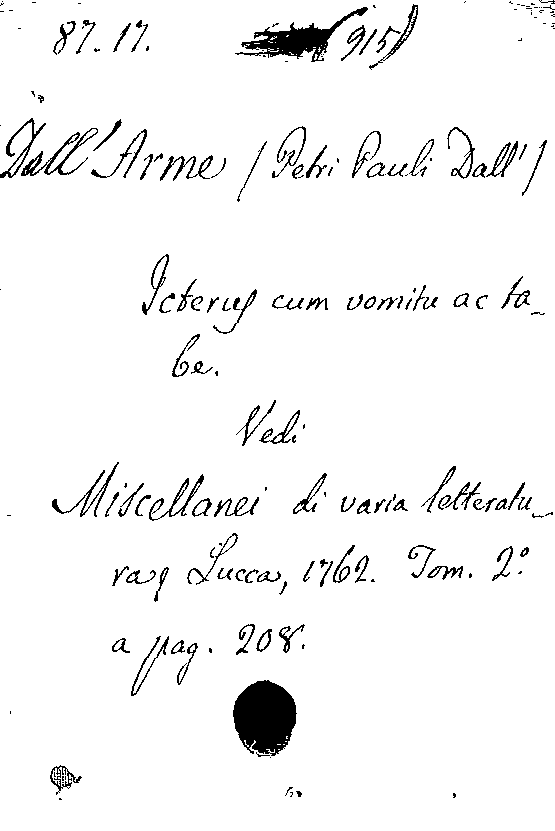 87.17. (915)
Dall'Arme (Petri Pauli Dall')
Icterus cum vomitu ac ta-
be.
Vedi
Miscellanei di varia letteratu-
ra, Lucca, 1762. Tom. 2º
a pag. 208.